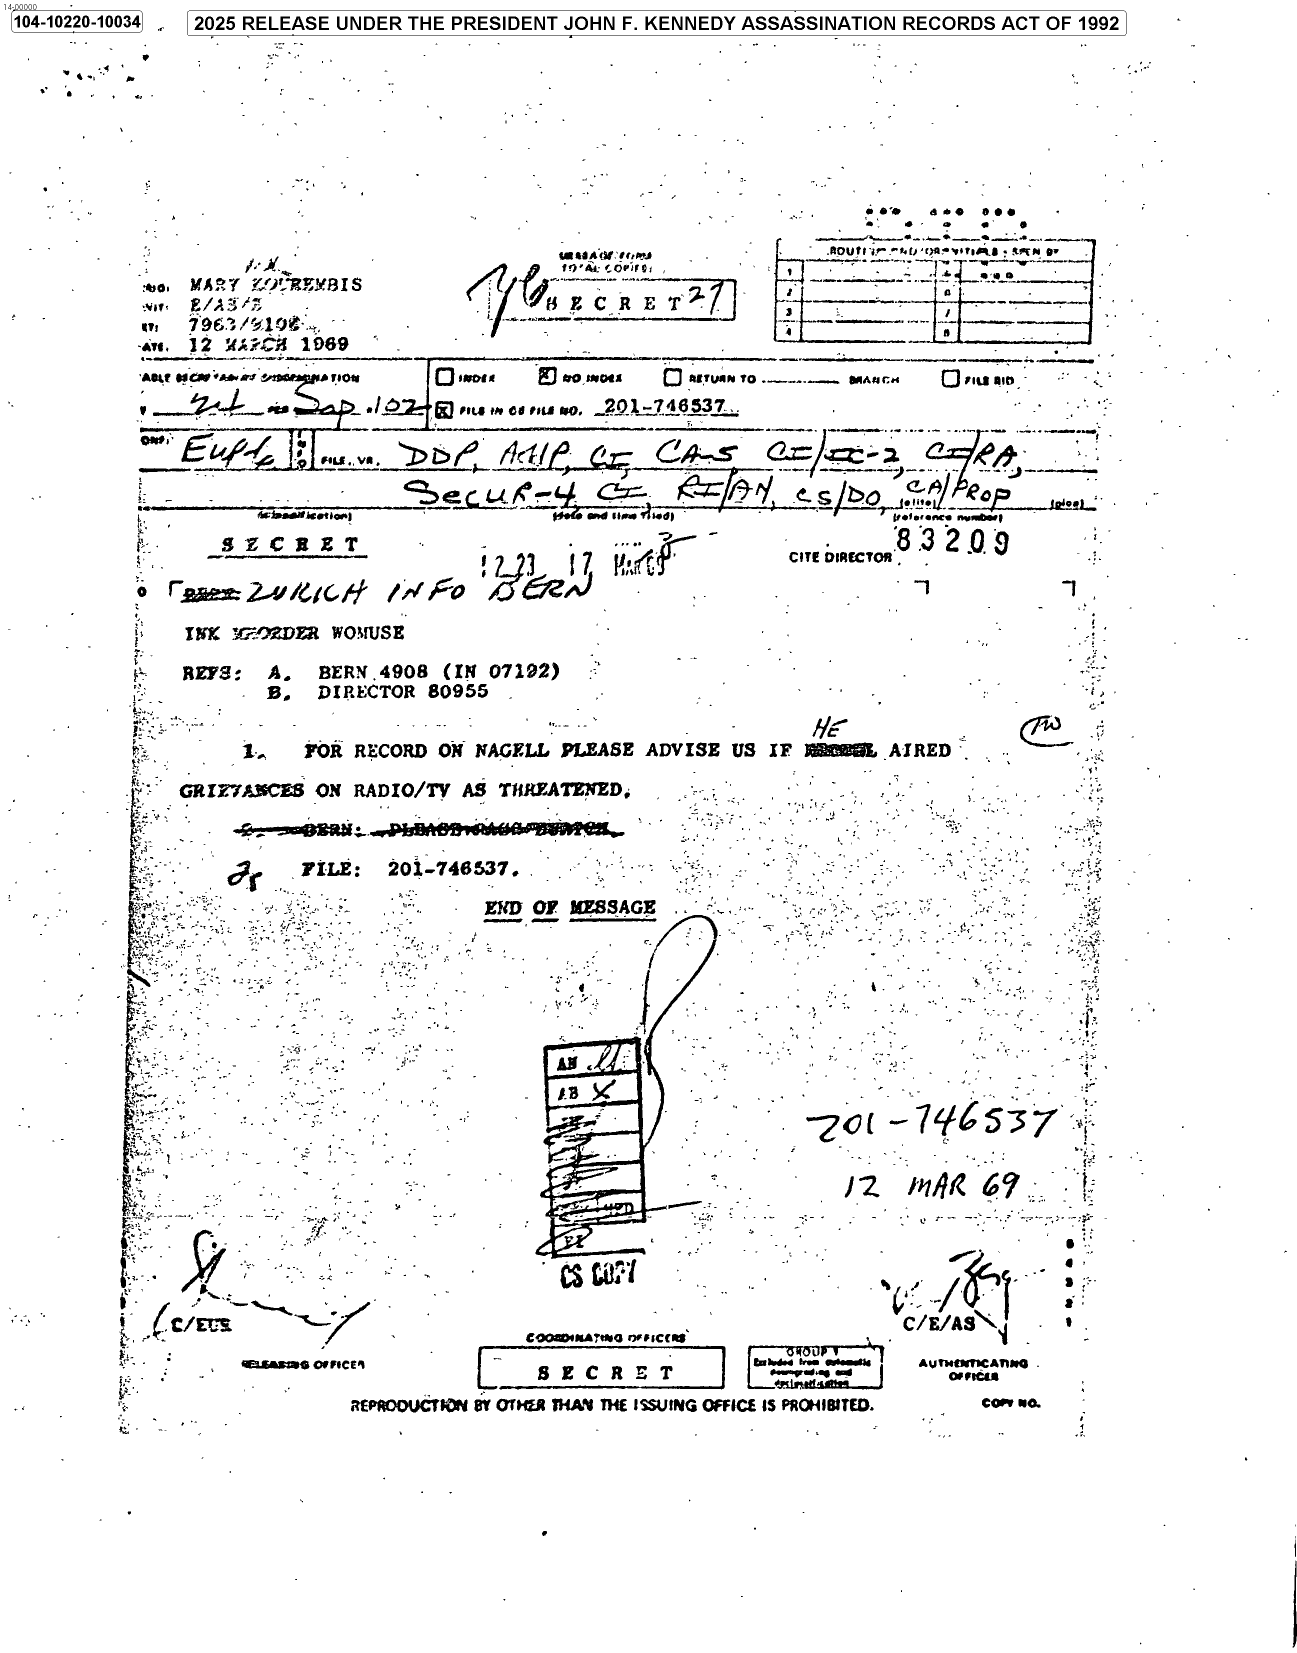 14-00000
104-10220-10034
2025 RELEASE UNDER THE PRESIDENT JOHN F. KENNEDY ASSASSINATION RECORDS ACT OF 1992
MESSAGE FORM
TOTAL COPIES:
MARY KOUREMBIS
E/AS/S
7963/9106
12 MARCH 1969
SECRET 27
1
2
3
4
INDEX X NO INDEX RETURN TO BRANCH FILE RID
X FILE IN CS FILE NO. 201-746537
EUR 6 FILE, VR. DDP, ADDP, CI, CA-5 CI/IC-2, CI/RA,
SECUR-4 CI RI/AN, CS/DO, CA/PROP
(classification) (date and time filed) (elite) (reference number) (pica)
SECRET
12 23 17 MAR 69
CITE DIRECTOR 83209
ZURICH INFO BERN
INK WOMUSE
REFS: A. BERN 4908 (IN 07192)
B. DIRECTOR 80955
1. FOR RECORD ON NAGELL PLEASE ADVISE US IF HE AIRED
GRIEVANCES ON RADIO/TV AS THREATENED.
BERN:
2. FILE: 201-746537.
END OF MESSAGE
AN
AB X
201-746537
12 MAR 69
CS COPY
C/EUR
C/E/AS
5
4
3
2
1
COORDINATING OFFICERS
RELEASING OFFICER
SECRET
GROUP 1
Excluded from automatic
downgrading and
declassification
AUTHENTICATING
OFFICER
REPRODUCTION BY OTHER THAN THE ISSUING OFFICE IS PROHIBITED.
COPY NO.